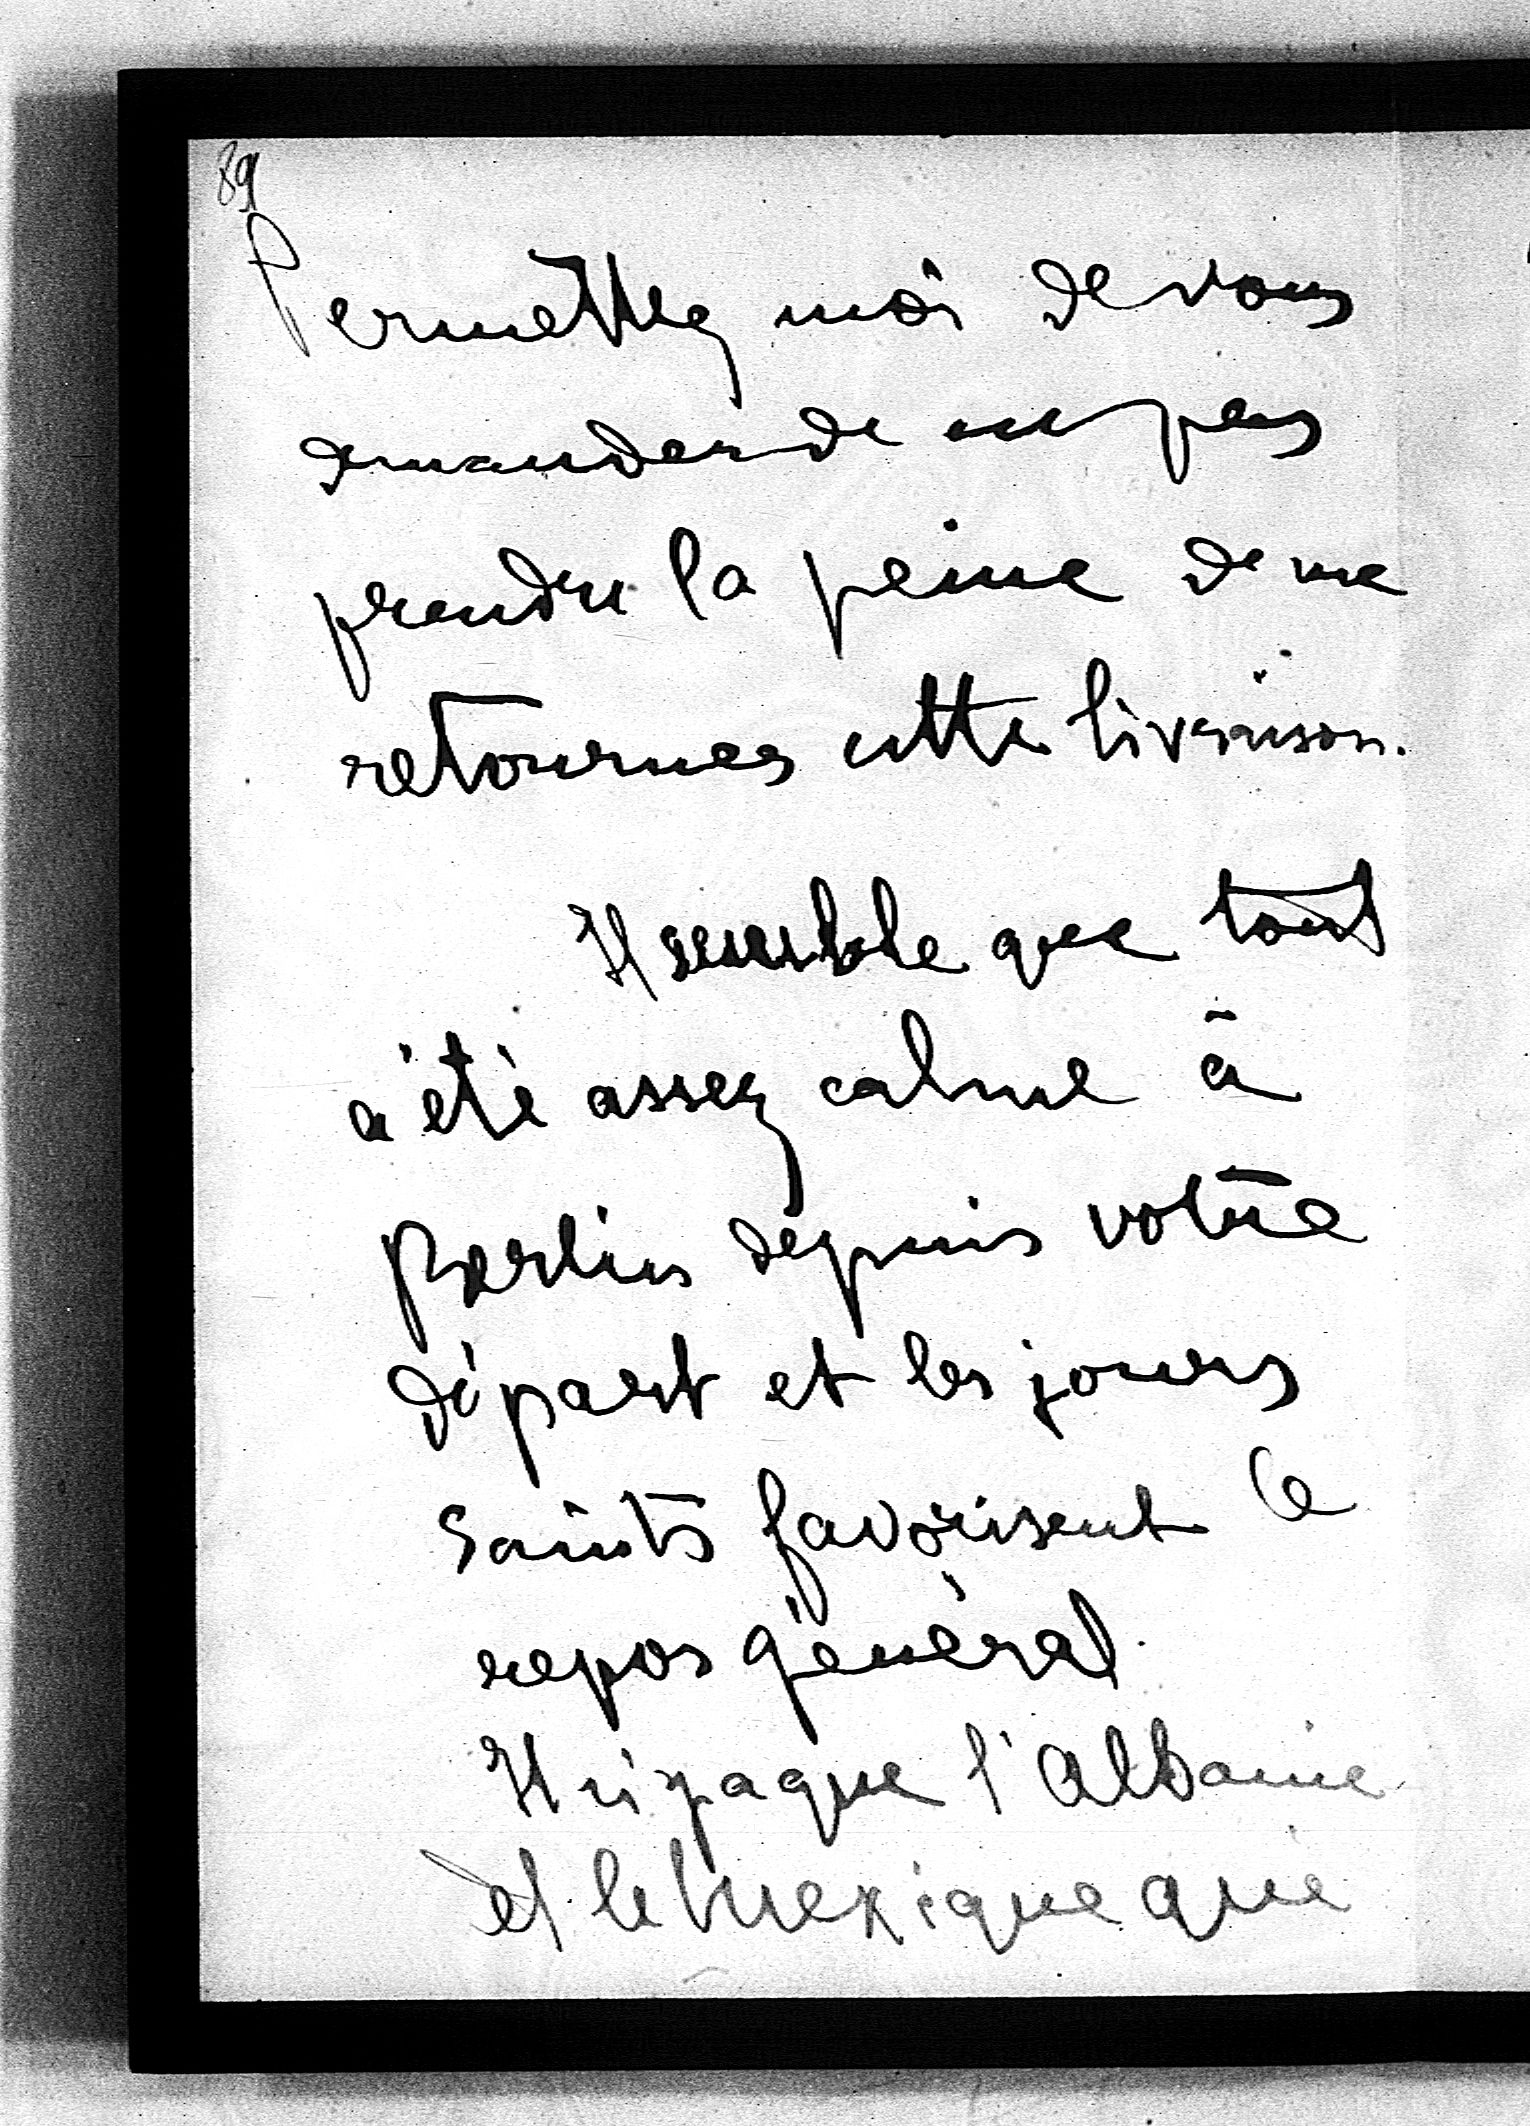 89
Permettez moi de vous
demander de ne pas
prendre la peine de me
retourner cette livraison.
Il semble que tout
a été assez calme à
Berlin depuis votre
départ et les jours
Saints favorisent le
repos général.
Il n'i pa que l'Albanie
et le Mexique qui